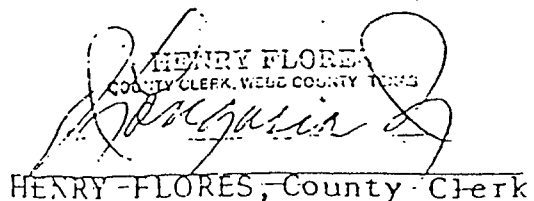 HENRY FLORES
COUNTY CLERK, WEBB COUNTY TEXAS
HENRY FLORES, County Clerk